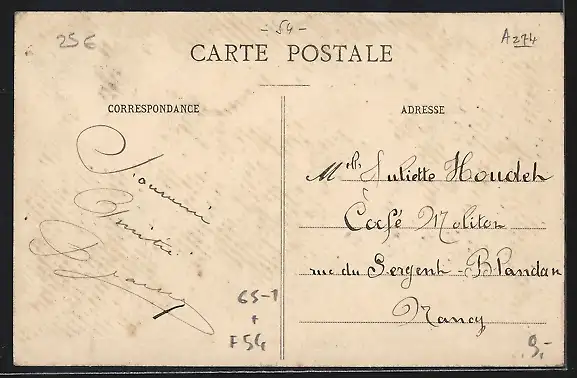 25 €
- 54 -
A274
CARTE POSTALE
CORRESPONDANCE
ADRESSE
Souvenir
Amitié
Melle Juliette Houdeh
Café Moliton
rue du Sergent-Blandan
Nancy
65-1
+
F54
9,-